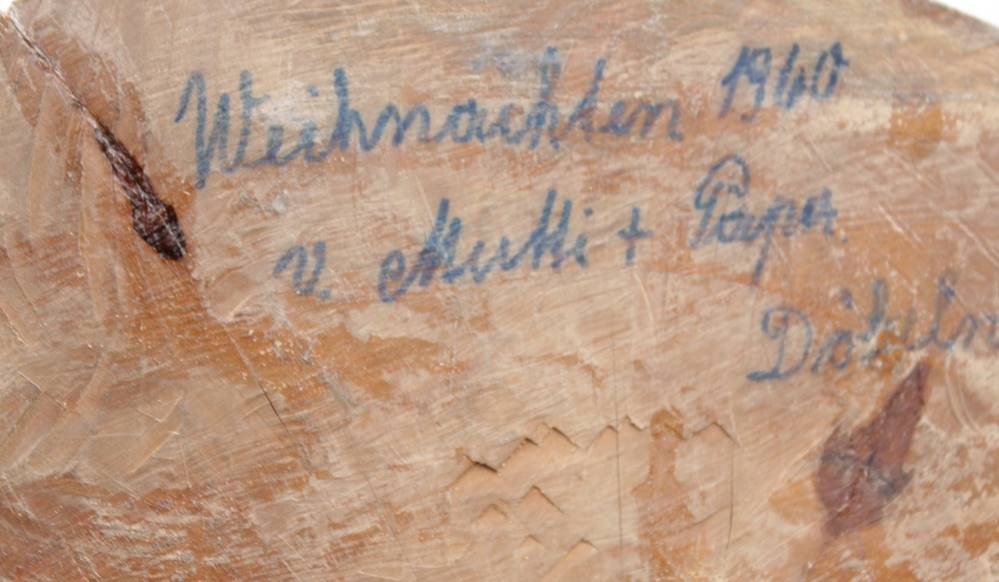 Weihnachten 1940
v. Mutti + Papa.
Döbeln